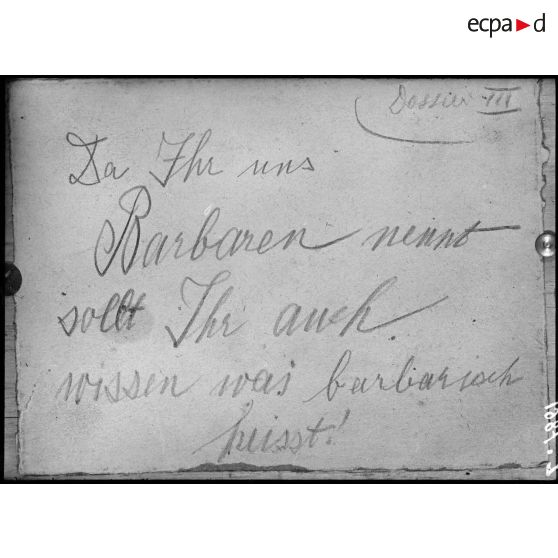 ecpa d
Dossier III
Da Ihr uns
Barbaren nennt
sollt Ihr auch
wissen was barbarisch
heisst!